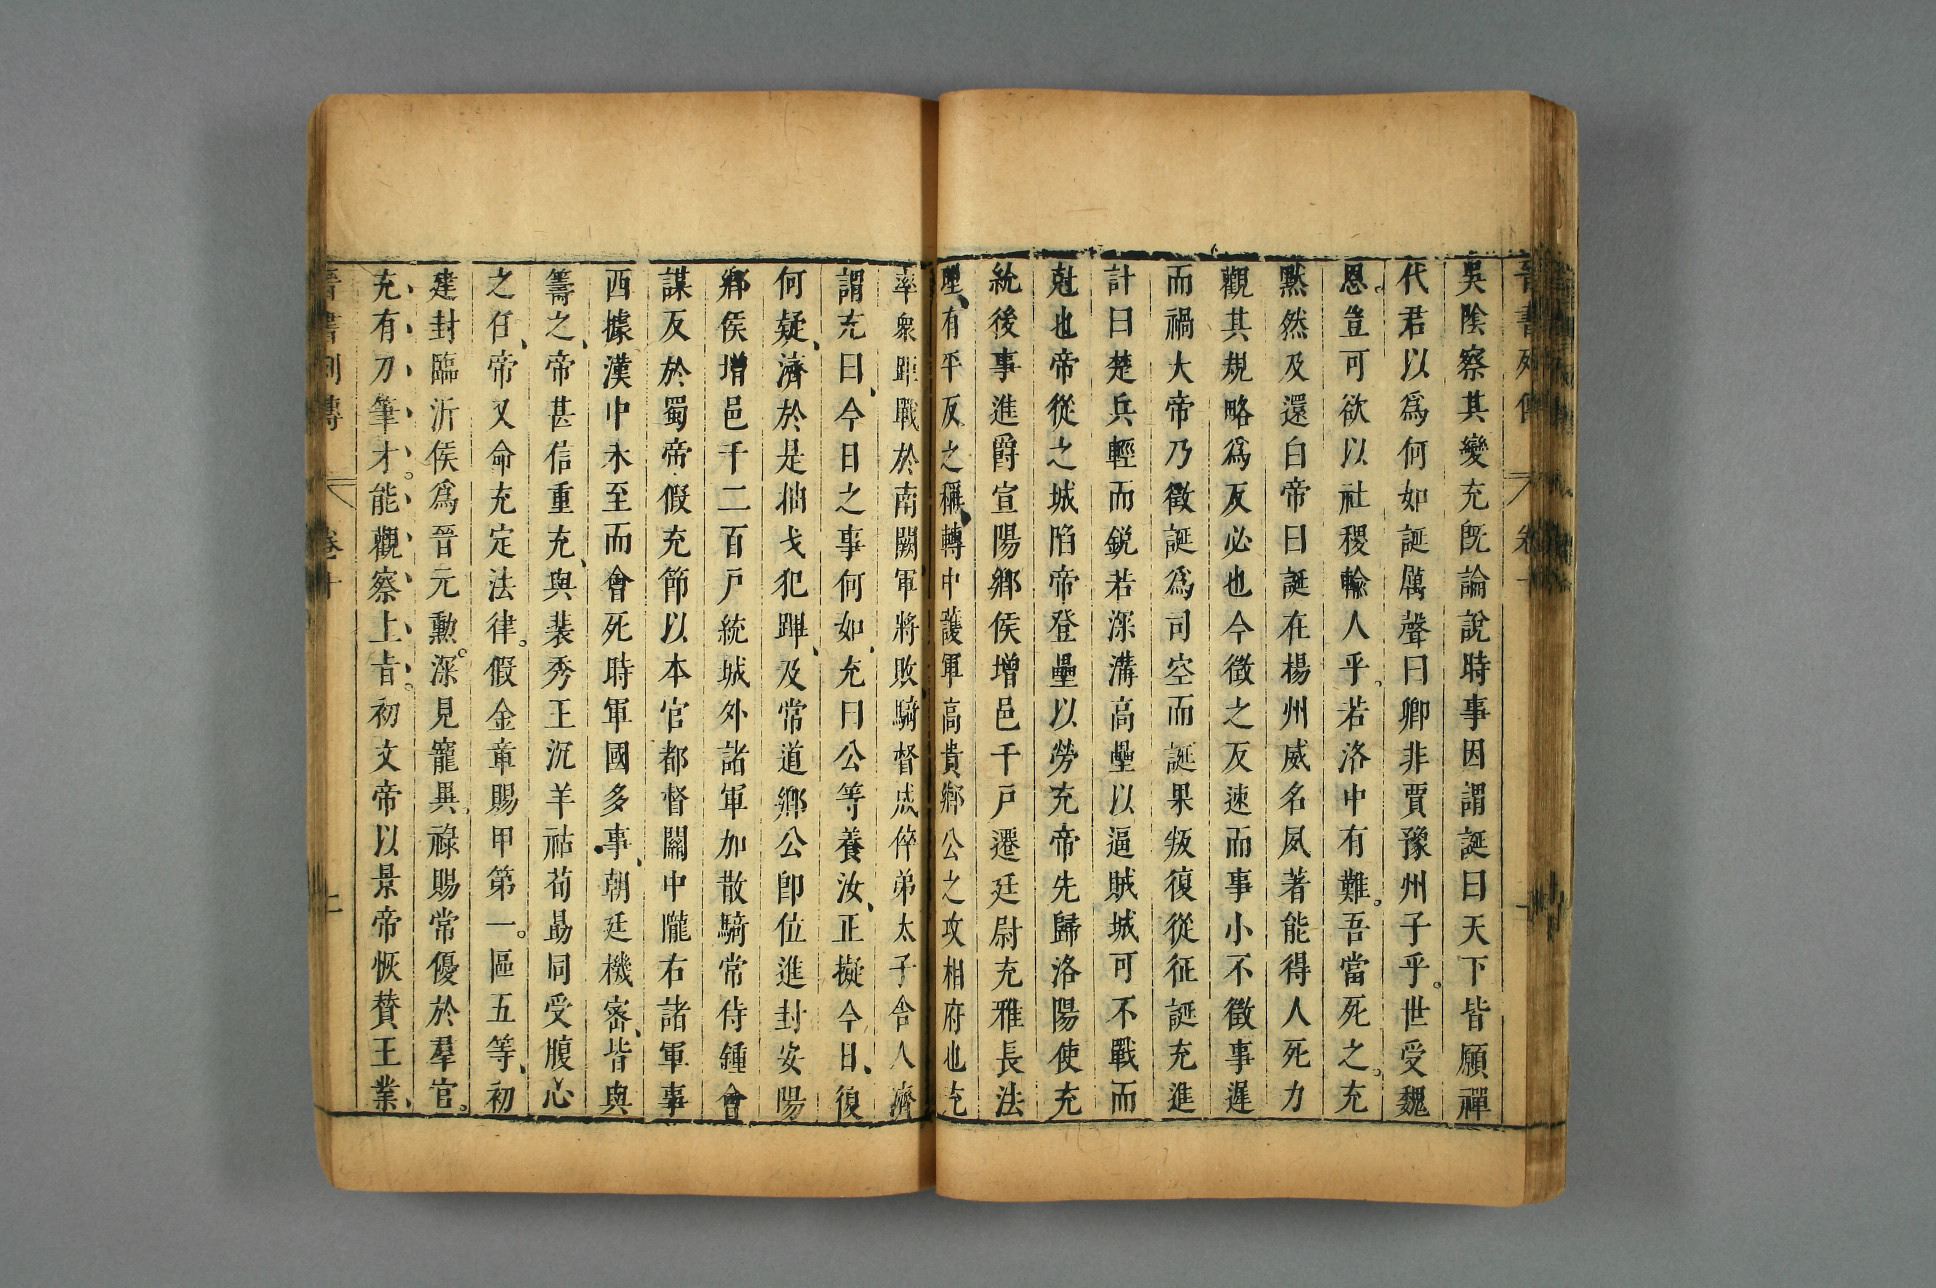 吳陰察其變充旣論說時事因謂誕曰天下皆願禪
代君以爲何如誕厲聲曰卿非賈豫州子乎。世受魏
恩。豈可欲以社稷輸人乎。若洛中有難。吾當死之。充
默然及還白帝曰誕在楊州威名夙著能得人死力
觀其規略爲反必也今徵之反速而事小不徵事遲
而禍大帝乃徵誕爲司空而誕果叛復從征誕充進
計曰楚兵輕而銳若深溝高壘以逼賊城可不戰而
尅也帝從之城陷帝登壘以勞充帝先歸洛陽使充
統後事進爵宣陽鄉侯增邑千戶遷廷尉充雅長法
理、有平反之稱、轉中護軍高貴鄉公之攻相府也充
率衆距戰於南闕、軍將敗、騎督成倅弟太子舍人濟
謂充曰、今日之事何如、充曰公等養汝、正擬今日、復
何疑、濟於是抽戈犯蹕、及常道鄉公卽位進封安陽
鄉侯增邑千二百戶統城外諸軍加散騎常侍鍾會
謀反於蜀帝假充節以本官都督關中隴右諸軍事
西據漢中未至而會死時軍國多事、朝廷機密、皆與
籌之、帝甚信重充、與裴秀王沉羊祜荀勗同受腹心
之任、帝又命充定法律。假金章賜甲第一。區五等、初
建封臨沂侯爲晉元勳。深見寵異、祿賜常優於羣官。
充有刀筆才。能觀察上旨。初文帝以景帝恢贊王業、
晉書列傳 卷十